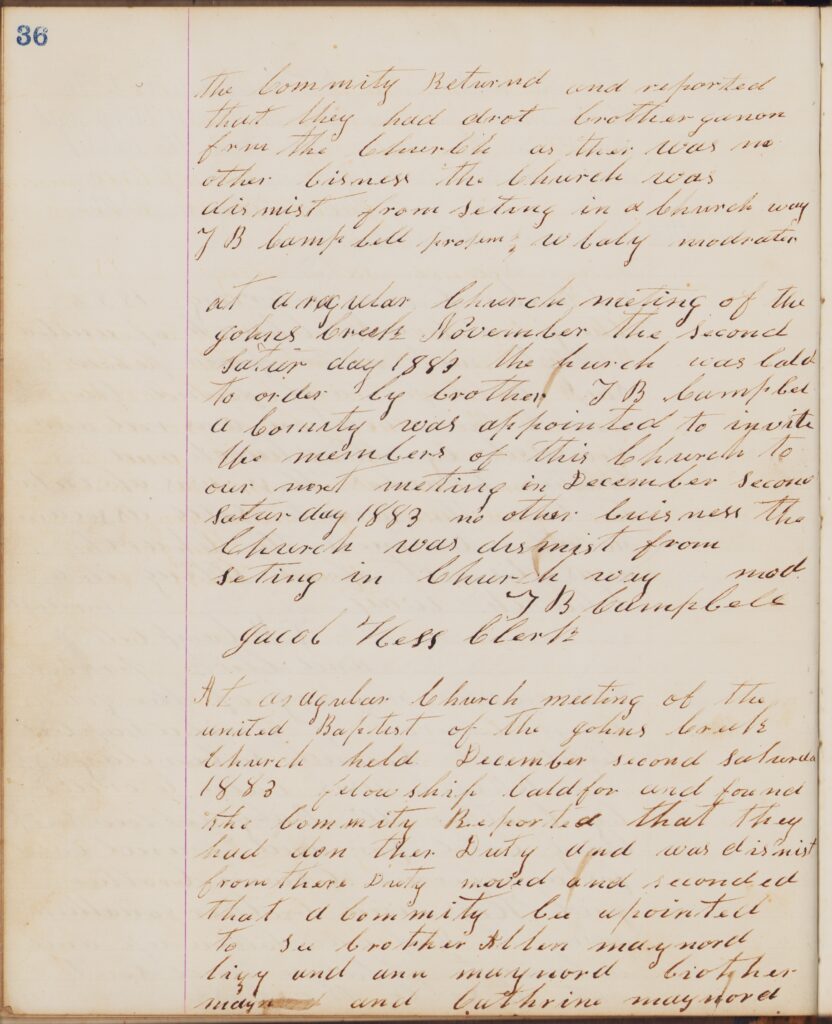 36
the Commity Returnd and reported
that they had drot brother ganon
frm the Church as ther was no
other bisness the Church was
dismist from seting in a Church way
J B Campbell protem; w Caly modrater
at aragular Church meting of the
johns Creek November the second
Satur day 1883 the hurch was Cald
to order by brother J B Campbel
a Comity was appointed to invite
the members of this Church to
our next meting in December Second
Satur day 1883 no other buisness the
Church was dismist from
seting in Church way mod
J B Campbell
Jacob Hess Clerk
At aragular Church meeting of the
united Baptist of the johns Creek
Church held December second Saturda
1883 felowship Caldfor and found
the Commity Reported that they
had don ther Duty and was dismist
from there Duty moved and seconded
that a Commity be apointed
to see brother Allen maynord
and ann maynord brother
and Cathrine maynord